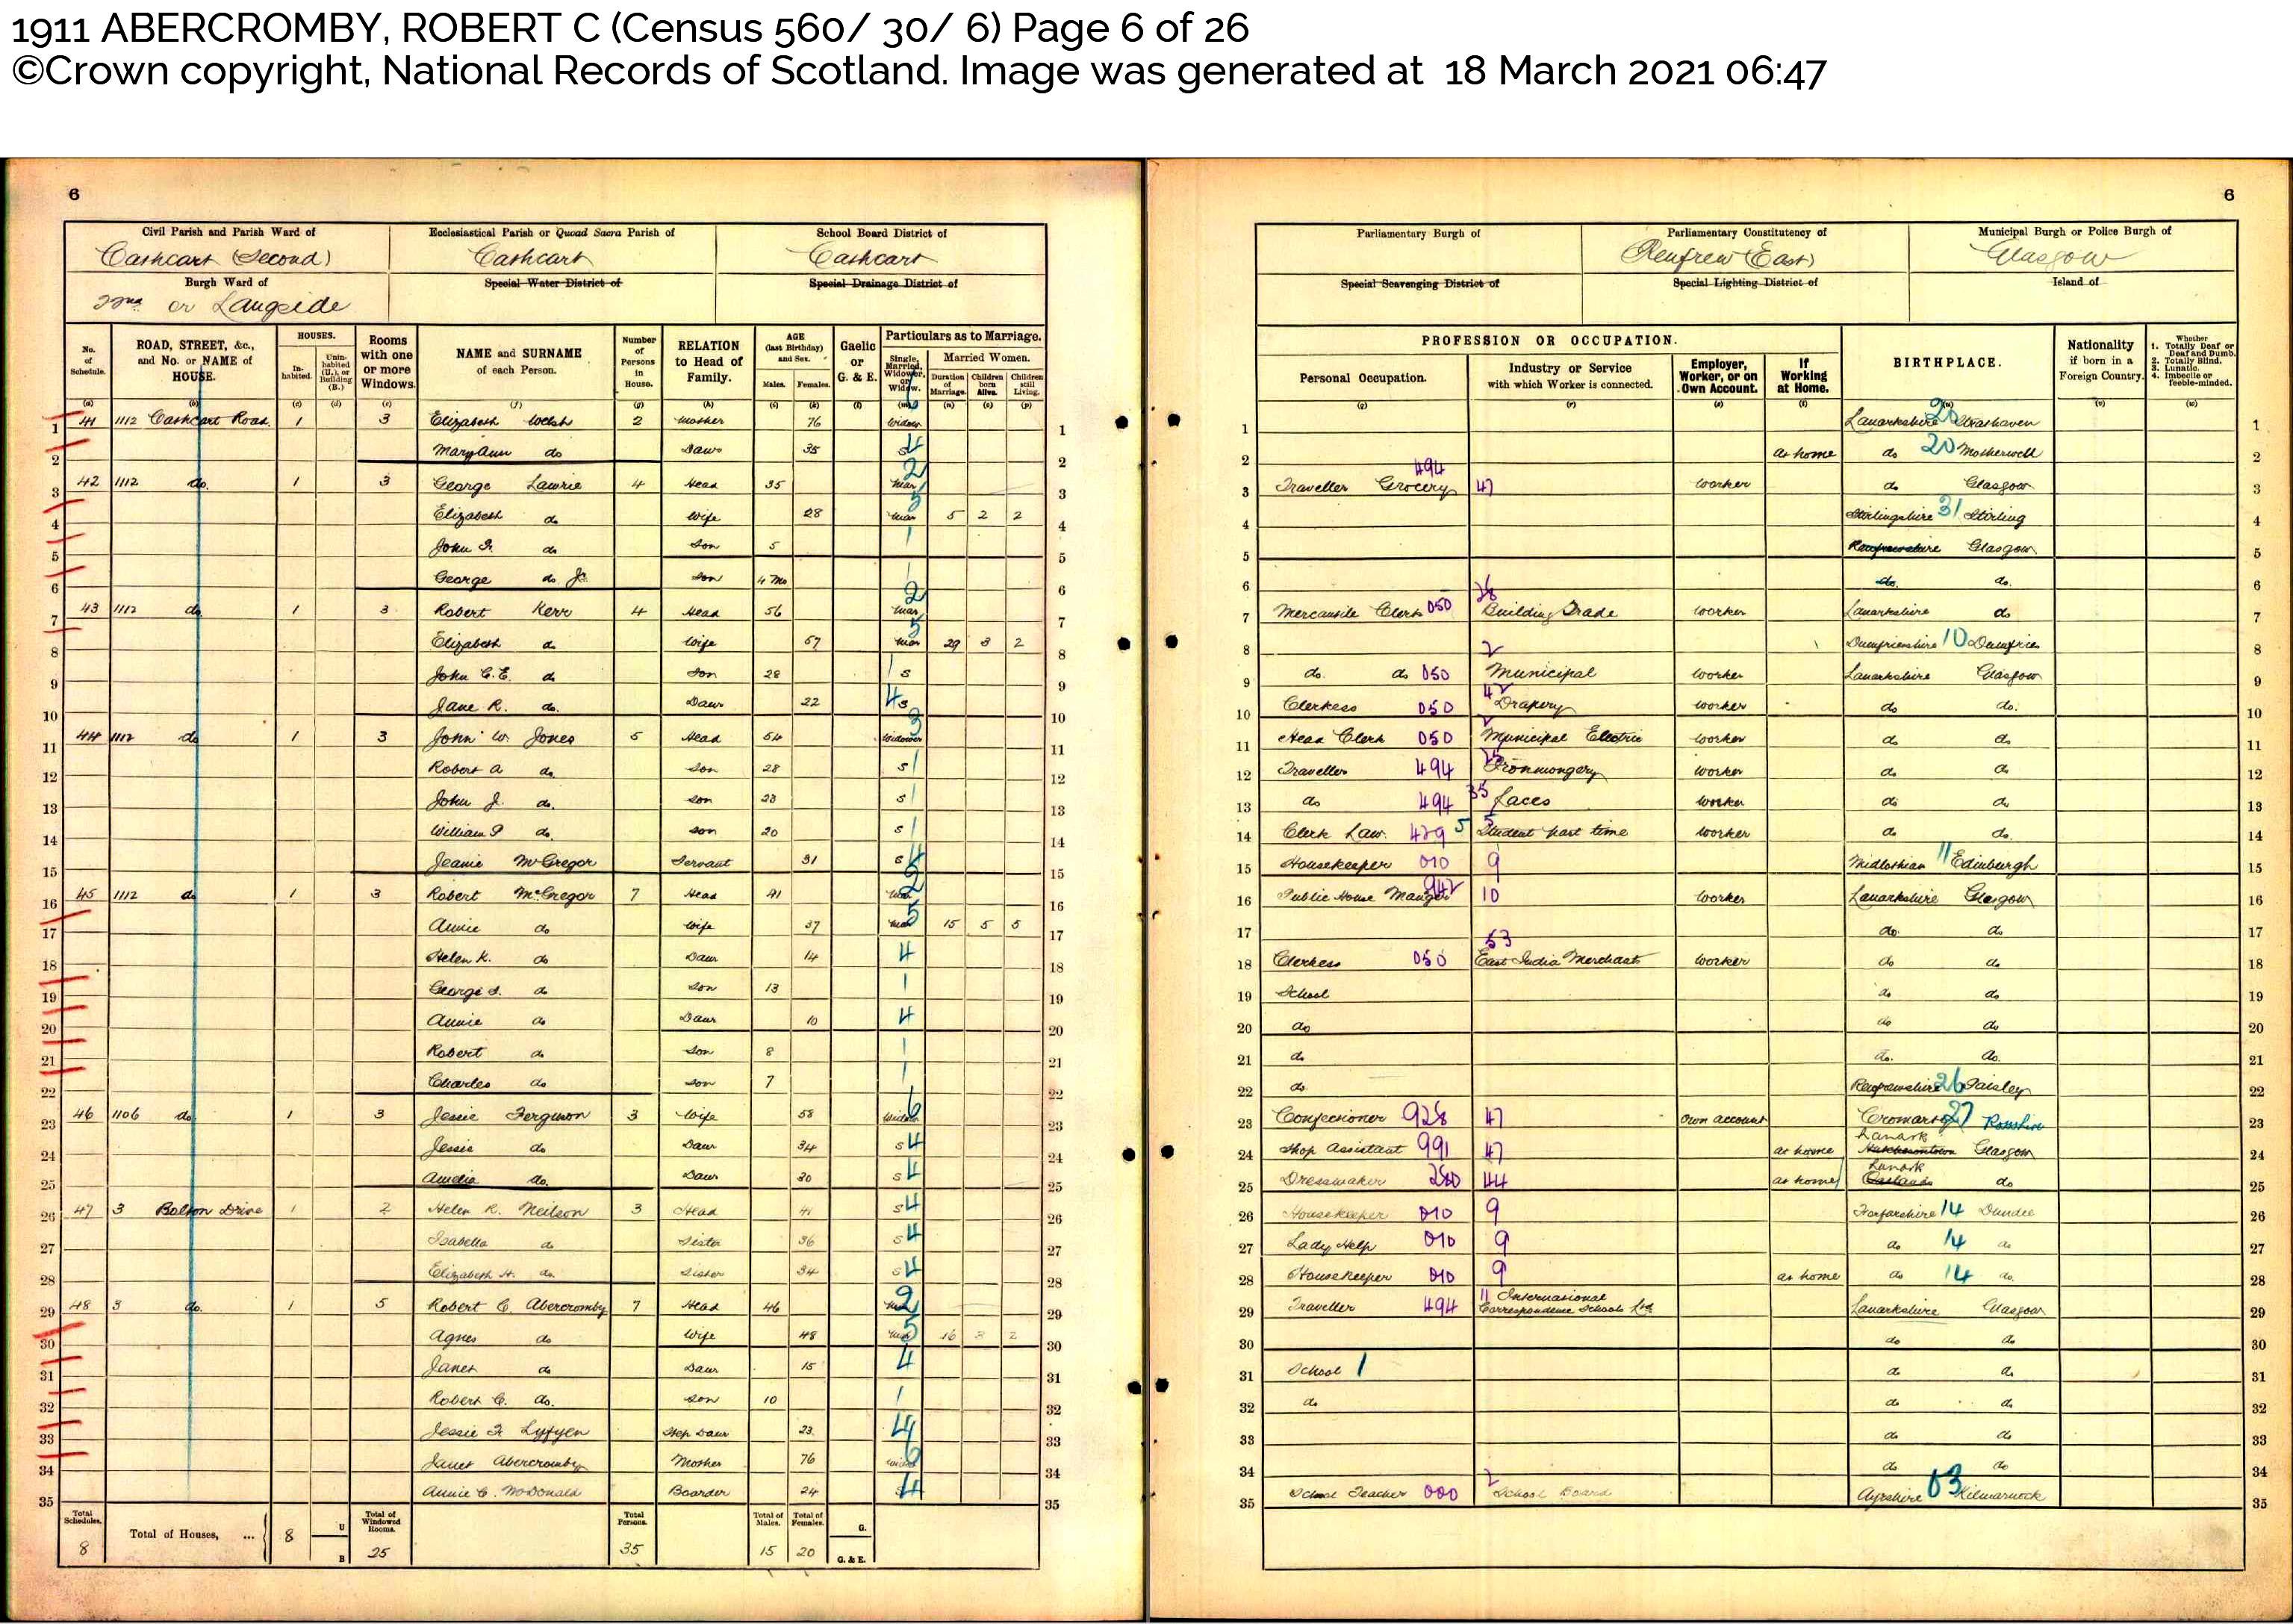 1911 ABERCROMBY, ROBERT C (Census 560/ 30/ 6) Page 6 of 26
©Crown copyright, National Records of Scotland. Image was generated at 18 March 2021 06:47
6
6
Civil Parish and Parish Ward of
Cathcart (Second)
Ecclesiastical Parish or Quoad Sacra Parish of
Cathcart
School Board District of
Cathcart
Burgh Ward of
or Langside
Special Water District of
Special Drainage District of
Parliamentary Burgh of
Parliamentary Constituency of
Renfrew (East)
Municipal Burgh or Police Burgh of
Glasgow
Special Scavenging District of
Special Lighting District of
Island of
No. of Schedule.
ROAD, STREET, &c., and No. or NAME of HOUSE.
HOUSES.
Inhabited.
Uninhabited (U.), or Building (B.)
Rooms with one or more Windows.
NAME and SURNAME of each Person.
Number of Persons in House.
RELATION to Head of Family.
AGE (last Birthday) and Sex.
Males.
Females.
Gaelic or G. & E.
Particulars as to Marriage.
Single, Married, Widower, or Widow.
Married Women.
Duration of Marriage.
Children born Alive.
Children still Living.
PROFESSION OR OCCUPATION.
Personal Occupation.
Industry or Service with which Worker is connected.
Employer, Worker, or on Own Account.
If Working at Home.
BIRTHPLACE.
Nationality if born in a Foreign Country.
Whether
1. Totally Deaf or Deaf and Dumb.
2. Totally Blind.
3. Lunatic.
4. Imbecile or feeble-minded.
1 41 1112 Cathcart Road 1 3 Elizabeth Welsh 2 Mother 76 Widow 6 Lanarkshire 20 Strathaven
2 Mary Ann do Daur 35 S 4 at home do 20 Motherwell
3 42 1112 do. 1 3 George Lawrie 4 Head 35 Mar 2 Traveller Grocery 494 47 Worker do Glasgow
4 Elizabeth do Wife 28 Mar 5 5 2 2 Stirlingshire 31 Stirling
5 John do Son 5 1 Renfrewshire Glasgow
6 George do Jr Son 4 Mo 1 do. do.
7 43 1112 do 1 3 Robert Kerr 4 Head 56 Mar 2 Mercantile Clerk 050 Building Trade Worker Lanarkshire do
8 Elizabeth do Wife 57 Mar 5 29 3 2 Dumfriesshire 10 Dumfries
9 John C.E. do Son 28 S 1 do. do 050 2 Municipal Worker Lanarkshire Glasgow
10 Jane R. do. Daur 22 S 4 Clerkess 050 42 Drapery Worker do do.
11 44 1112 do 1 3 John W. Jones 5 Head 54 Widower 3 Head Clerk 050 2 Municipal Electric Worker do do
12 Robert A do Son 28 S 1 Traveller 494 Ironmongery Worker do do
13 John J. do. Son 23 S 1 do 494 35 Laces Worker do do
14 William P do Son 20 S 1 Clerk Law 5 Student part time Worker do do.
15 Jeanie McGregor Servant 31 S 4 Housekeeper 010 9 Midlothian 11 Edinburgh
16 45 1112 do 1 3 Robert McGregor 7 Head 41 Mar 2 Public House Manager 942 10 Worker Lanarkshire Glasgow
17 Annie do Wife 37 Mar 5 15 5 5 do. do
18 Helen K. do Daur 14 4 Clerkess 050 53 East India Merchant Worker do do
19 George do Son 13 1 School do do
20 Annie do Daur 10 4 do do do
21 Robert do Son 8 1 do do. do.
22 Charles do Son 7 1 do Renfrewshire 26 Paisley
23 46 1106 do 1 3 Jessie Ferguson 3 Wife 58 Widow 6 Confectioner 928 47 Own account Cromarty 27 Rosshire
24 Jessie do Daur 34 S 4 Shop Assistant 991 47 at home Lanark Hutchesontown Glasgow
25 Amelia do. Daur 30 S 4 Dressmaker 44 at home Lanark do
26 47 3 Bolton Drive 1 2 Helen R. Neilson 3 Head 41 S 4 Housekeeper 010 9 Forfarshire 14 Dundee
27 Isabella do Sister 36 S 4 Lady Help 010 9 do 14 do
28 Elizabeth H. do. Sister 34 S 4 Housekeeper 010 9 at home do 14 do.
29 48 3 do. 1 5 Robert C. Abercromby 7 Head 46 Mar 2 Traveller 494 11 International Correspondence Schools Ltd Lanarkshire Glasgow
30 Agnes do Wife 48 Mar 5 16 3 2 do do
31 Janet do Daur 15 4 School 1 do do
32 Robert C. do. Son 10 1 do do do
33 Jessie Step Daur 23 4 do do
34 Janet Abercromby Mother 76 Widow 6 do do
35 Annie C. McDonald Boarder 24 S 4 School Teacher 000 2 School Board Ayrshire 03 Kilmarnock
Total Schedules,
8
Total of Houses, ...
8
U
B
Total of Windowed Rooms.
25
Total Persons.
35
Total of Males.
15
Total of Females.
20
G.
G. & E.